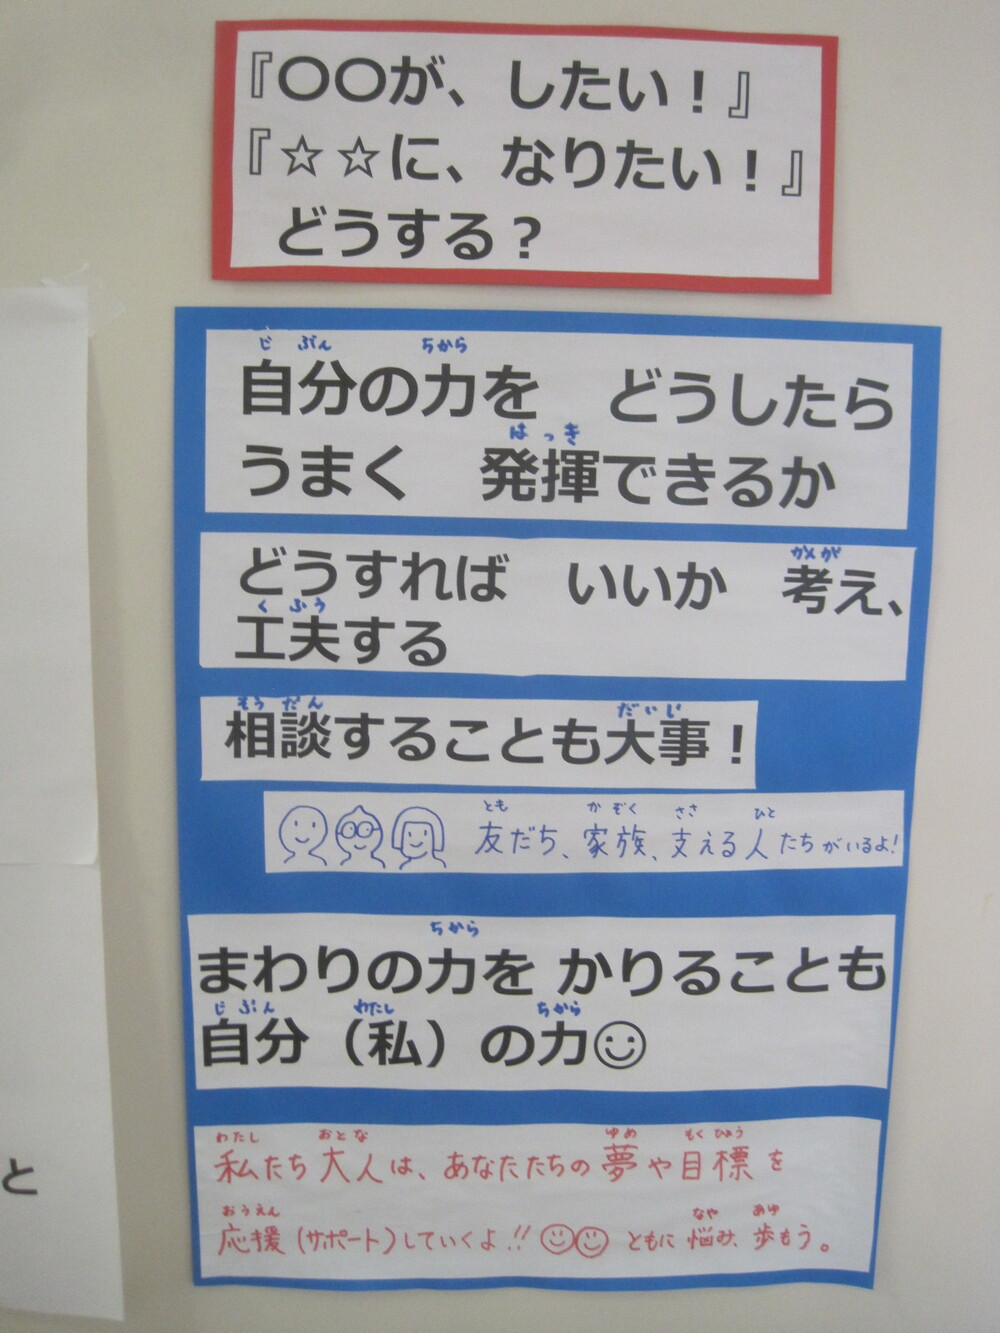 『〇〇が、したい！』
『☆☆に、なりたい！』
どうする？
じ ぶん ちから
自分の力を どうしたら
はっき
うまく 発揮できるか
かんが
どうすれば いいか 考え、
く ふう
工夫する
そう だん だいじ
相談することも大事！
とも か ぞく ささ ひと
友だち、家族、支える人たちがいるよ!
ちから
まわりの力を かりることも
じ ぶん わたし ちから
自分（私）の力☺
わたし おとな ゆめ もくひょう
私たち大人は、あなたたちの夢や目標を
おうえん なや あゆ
応援(サポート)していくよ!!☺☺ ともに悩み、歩もう。
と